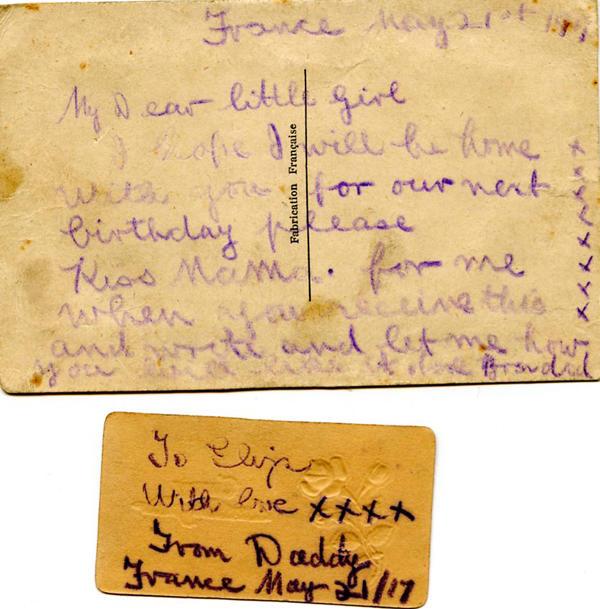 France May 21st 191
My Dear little Girl
I hope I will be home
with you for our next
birthday please
Kiss Mama. for me
when you receive this
and write and let me how
you like it
x x x x x x x x
Fabrication Française
To
With love xxxx
From Daddy
France May 21/17